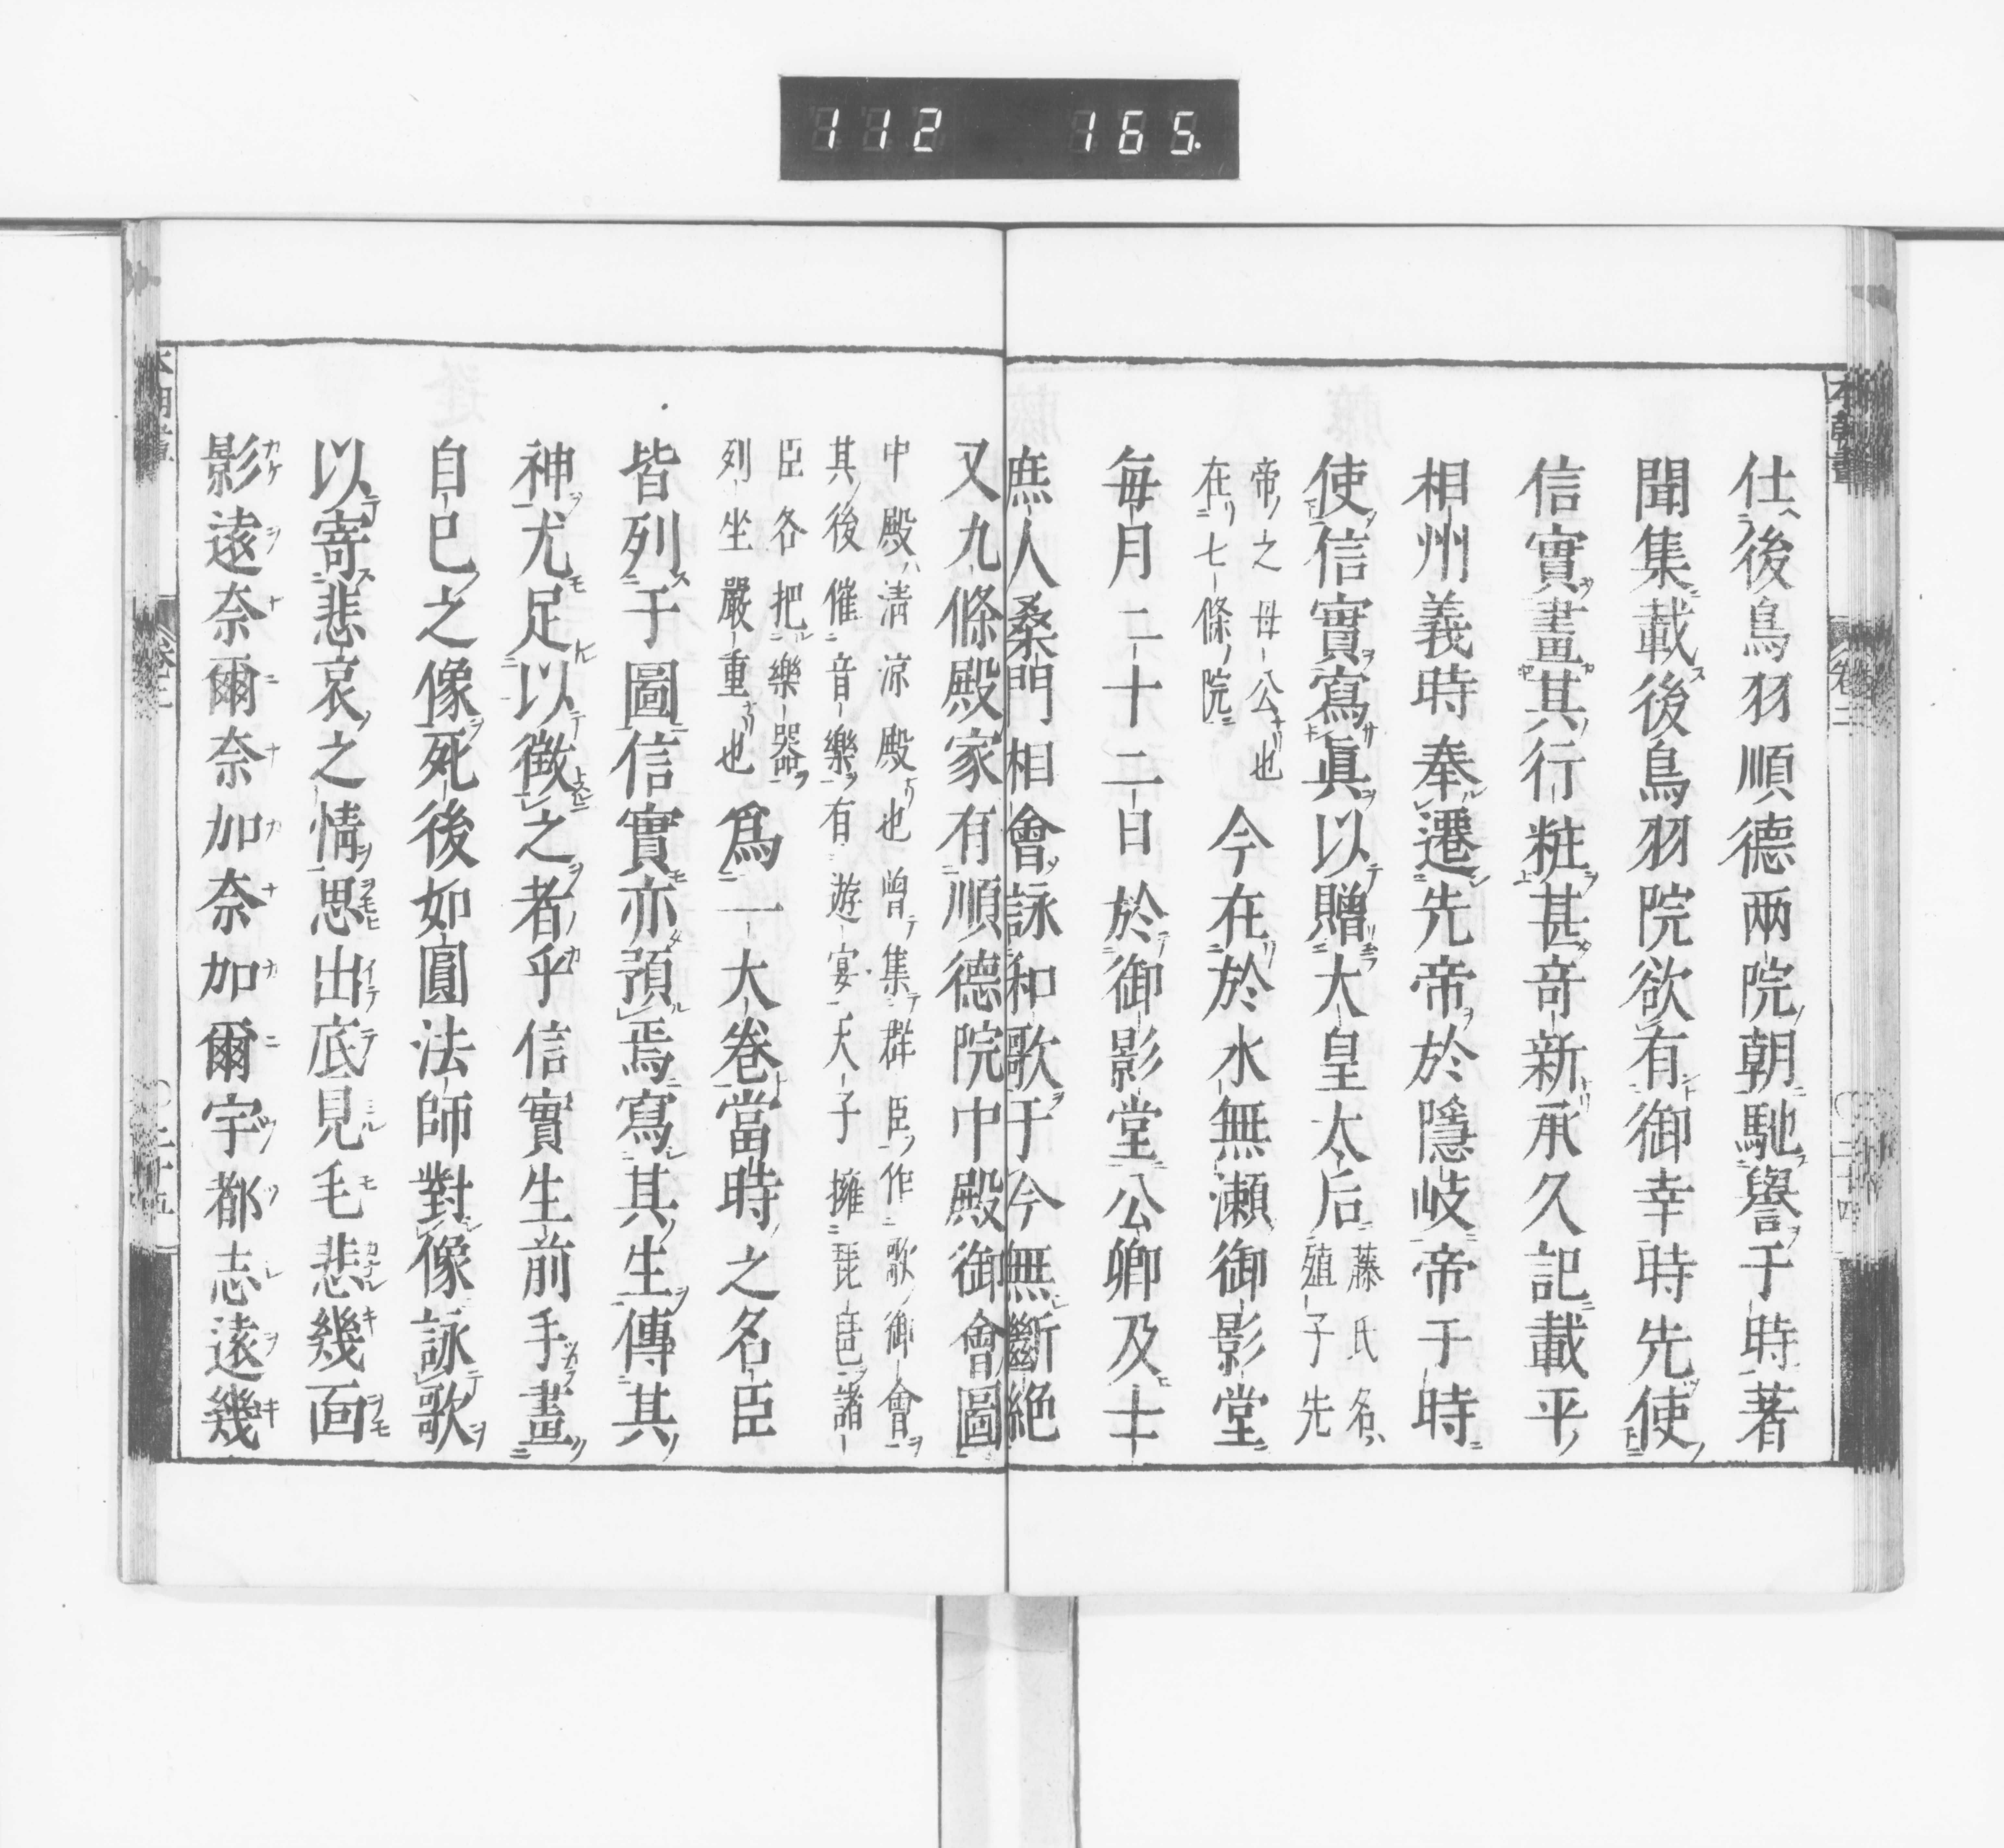 112 165.
本朝畫
卷二
二十四
仕後鳥羽順德兩院朝馳譽于時著
聞集載後鳥羽院欲有御幸時先使
信實畫其行粧甚竒新承久記載平
相州義時奉遷先帝於隱岐帝于時
使信實寫眞以贈大皇太后藤氏名殖子先
帝之母公也在七條院今在於水無瀬御影堂
毎月二十二日於御影堂公卿及士
庶人桑門相會詠和歌于今無斷絶
又九條殿家有順德院中殿御會圖
中殿清凉殿也曽集群臣作歌御會
其後催音樂有遊宴天子擁琵琶諸
臣各把樂器
列坐嚴重也爲一大卷當時之名臣
皆列于圖信實亦預焉寫其生傳其
神尤足以徴之者乎信實生前手畫
自已之像死後如圓法師對像詠歌
以寄悲哀之情思出底見毛悲幾面
影遠奈爾奈加奈加爾宇都志遠幾
二十五